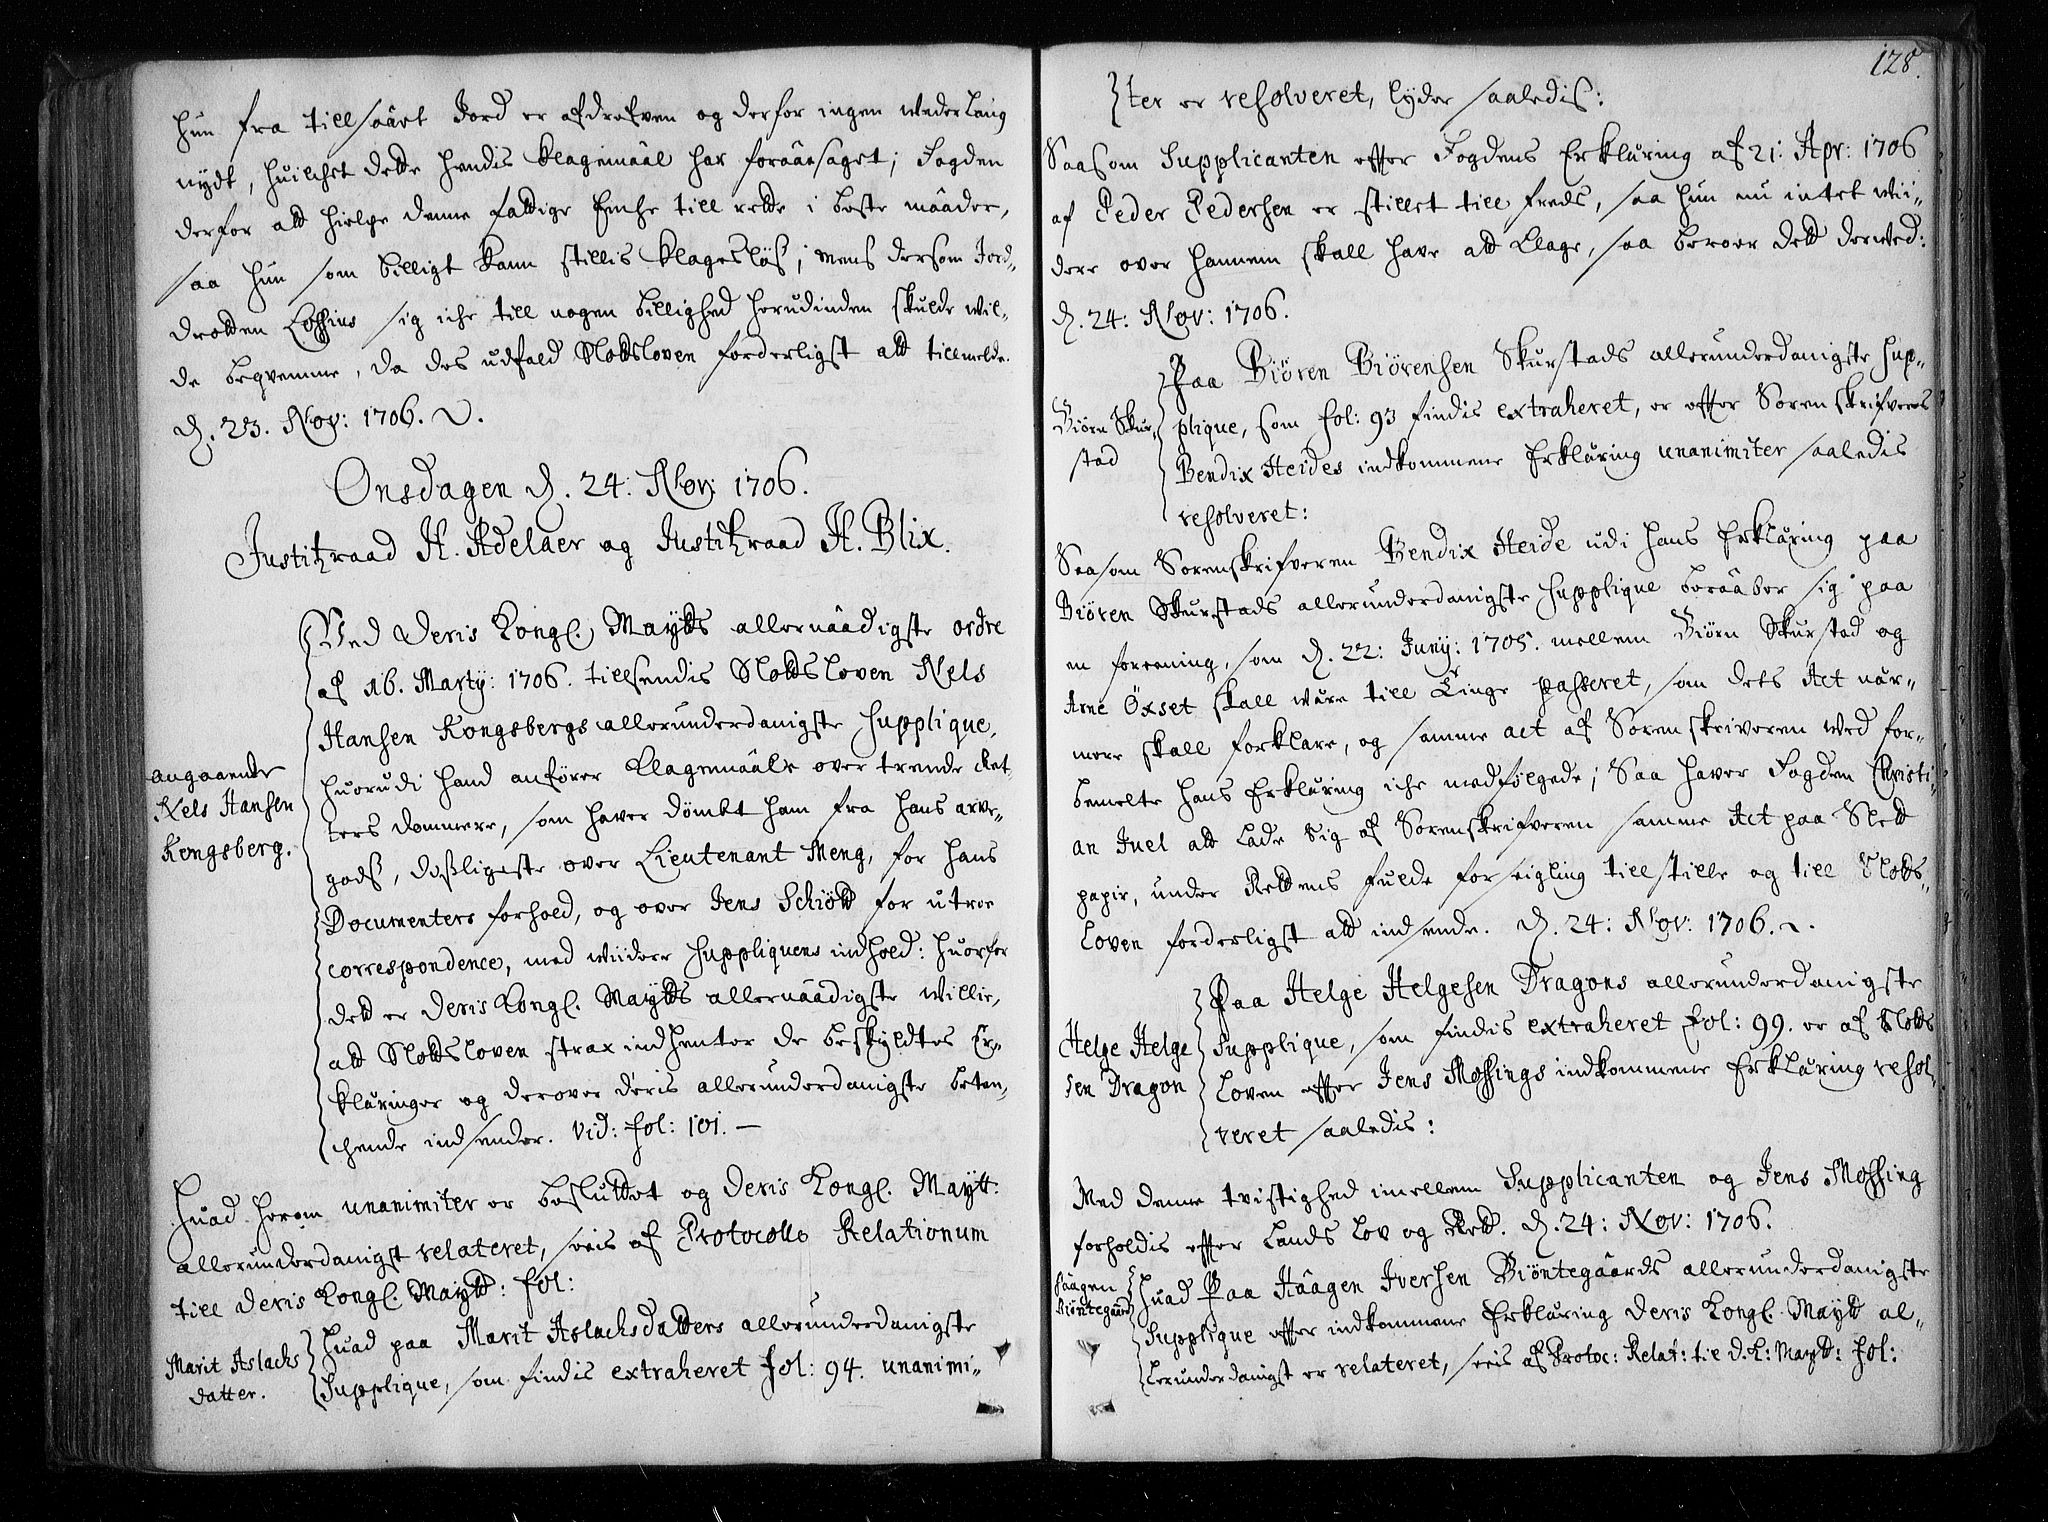 hun fra till saart Jord er afdrefven og derfor ingen wederlaug
nydt, huilchet dette hendis klagemaal har foraarsaget; Fogden
derfor att hielpe denne fattige Enche till rette i beste maader,
saa hun som billigt kann stillis klageslös; mens dersom Jord-
drotten sig iche till nogen billighed herudinden skulde wil-
de beqvemme, da des udfald Slottsloven forderligst att tillmelde.
d. 23. Nov: 1706.
Onsdagen d. 24: Nov: 1706.
Justitzraad H. Adelaer og Justitzraad H. Blix.
Ved Deris Kongl. Maytts allernaadigste ordre
af 16. Marty: 1706. tillsendis Slottsloven Nels
Hansen Kongsbergs allerunderdanigste Supplique,
huorudi hand anförer klagemaale over trende Ret-
ters dommere, som haver dömbt ham fra hans arve-
gods, desligeste over Lieutenant Meng, for hans
Documenters forhold, og over Jens Schiött for utroe
correspondence, med wiidere Suppliquens indhold: huorfor
det er Deris Kongl. Maytts allernaadigste Willie,
att Slottsloven strax indhenter de beskyldtes Er-
klæringer og derover deris allerunderdanigste beten-
chende indsender. Vid: fol: 101. —
angaaende
Nels Hansen
Kongsberg.
Huad herom unanimiter er besluttet og Deris Kongl. Maytt:
allerunderdanigst relateret, seeis af Protocollo Relationum
till Deris Kongl. Maytt: fol:
Marit Aslachs
datter.
Huad paa Marit Aslachsdatters allerunderdanigste
Supplique, som findis extraheret fol: 94. unanimi-
128.
ter er resolveret, lyder saaledis:
Saasom Supplicanten effter Fogdens Erklæring af 21: Apr: 1706
af Peder Pedersen er stillet till freds, saa hun nu intet wii-
dere over hannem skall have att klage, saa beroer dett derved:
d. 24: Nov: 1706.
Biörn Skur-
stad
Paa Biören Biörensen Skurstads allerunderdanigste Sup-
plique, som fol: 93 findis extraheret, er effter Sorenskrifverens
Bendix Heides indkommene Erklæring unanimiter saaledis
resolveret:
Saasom Sorenskrifveren Bendix Heide udi hans Erklæring paa
Biören Skurstads allerunderdanigste Supplique beraaber sig paa
en foreening, som d. 22: Juny: 1705. mellem Biörn Skurstad og
Arne Öxset skall være till Tinge passeret, som dets Act nær-
mere skall forklare, og samme act af Sorenskriveren ved for-
bemelte hans Erklæring iche medfölgede; Saa haver Fogden Christi-
an Juel att lade sig af Sorenskrifveren samme Act paa Slett
papir, under Rettens fulde forseigling tillstille og till Slotts-
loven forderligst att indsende. d. 24: Nov: 1706.
Helge Helge
sen Dragon
Paa Helge Helgesen Dragons allerunderdanigste
Supplique, som findis extraheret fol: 99. er af Slotts
loven effter Jens Mossings indkommene Erklæring resol-
veret saaledis:
Med denne tvistighed imellem Supplicanten og Jens Mossing
forholdis effter Lands Lov og Rett. d. 24: Nov: 1706.
Haagen
Biöntegaard
Huad Paa Haagen Iversen Biöntegaards allerunderdanigste
Supplique effter indkommene Erklæring Deris Kongl. Maytt al-
lerunderdanigst er relateret, seeis af Protoc: Relat: til D. K: Maytt: fol: